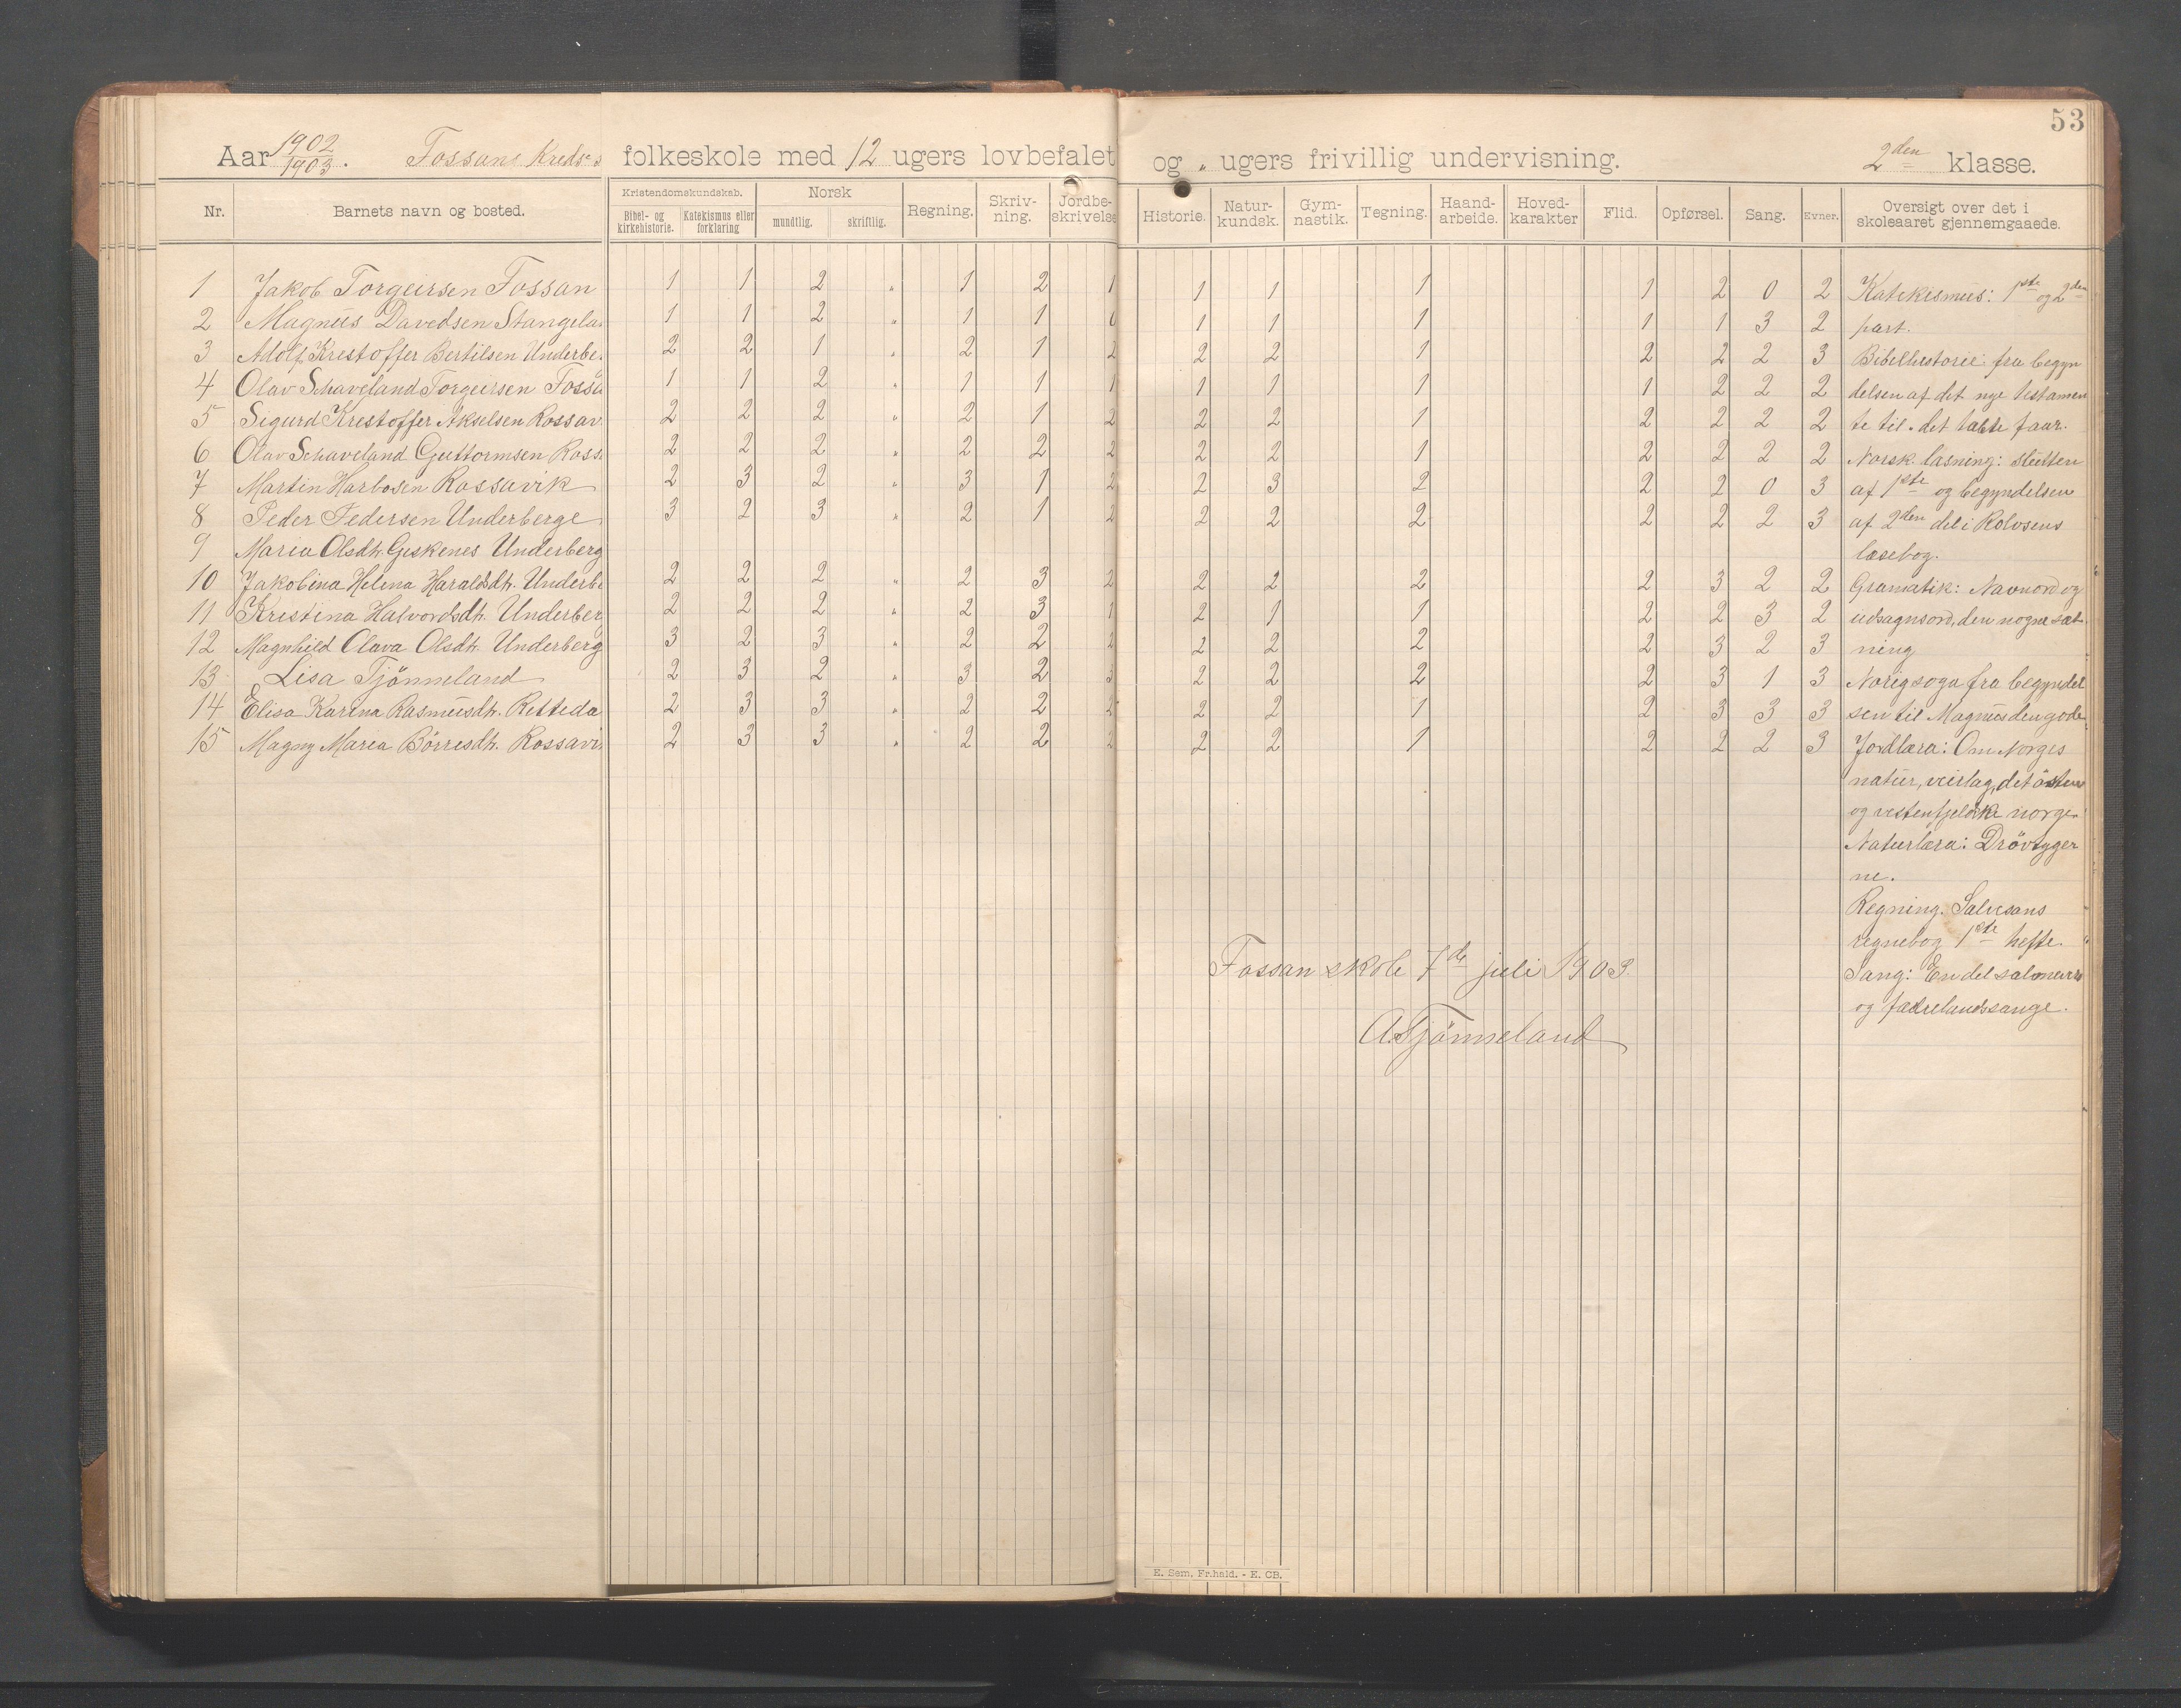 53
Aar 1902/1903. Fossans Kreds's folkeskole med 12 ugers lovbefalet og „ ugers frivillig undervisning. 2den klasse.
Nr. Barnets navn og bosted. Kristendomskundskab. Bibel- og kirkehistorie. Katekismus eller forklaring Norsk mundtlig. skriftlig. Regning. Skriv-ning. Jordbe-skrivelse Historie. Natur-kundsk. Gym-nastik. Tegning. Haand-arbeide. Hoved-karakter Flid. Opførsel. Sang. Evner. Oversigt over det i skoleaaret gjennemgaaede.
1 Jakob Torgeirsen Fossan 1 1 2 „ 1 2 1 1 1 1 1 2 0 2 Katekismus: 1ste og 2den
2 Magnus Davedsen Stangela 1 1 2 „ 1 1 1 1 1 1 1 3 2 part.
3 Adolf Krestoffer Bertilsen Underbe 2 2 1 „ 2 1 2 2 2 1 2 2 2 3 Bibelhistorie: fra begyn
4 Olav Schaveland Torgeirsen Fossa 1 1 2 „ 1 1 1 1 1 1 1 2 2 2 delsen af det nye testamen
5 Sigurd Krestoffer Akselsen Rossav 2 2 2 „ 2 1 2 2 2 1 2 2 2 2 te til det tabte faar.
6 Olav Schaveland Guttormsen Ross 2 2 2 „ 2 2 2 2 2 1 2 2 2 2 Norsk læsning: slutten
7 Martin Harbosen Rossavik 2 3 2 „ 3 1 2 2 3 2 2 2 0 3 af 1ste og begyndelsen
8 Peder Pedersen Underberge 3 2 3 „ 2 1 2 2 2 2 2 2 2 3 af 2den del i Rolvsens
9 Maria Olsdtr. Geskenes Underberg læsebog.
10 Jakobina Helena Haraldsdtr. Underbe 2 2 2 „ 2 3 2 2 2 2 2 3 2 2 Gramatik: Navnord og
11 Kristina Halvordsdtr. Underber 2 2 2 „ 2 3 1 2 1 1 2 2 3 2 udsagnsord, den nøgne sæt
12 Magnhild Olava Olsdtr. Underberg 3 2 3 „ 2 2 2 2 2 2 2 3 2 3 ning
13 Lisa Tjönneland 2 3 2 „ 3 2 3 2 2 2 2 3 1 3 Norigsoga fra begyndel
14 Elisa Karina Rasmusdtr. Retteda 2 3 3 „ 2 2 2 2 2 1 2 3 3 3 sen til Magnus den gode
15 Magny Maria Börresdtr. Rossavi 2 3 3 „ 2 2 2 2 2 1 2 2 2 3 Jordlæra: Om Norges
natur, veirlag, det östen
og vestenfjeldske norge.
Naturlæra: Drövtyger
ne.
Regning. Salvesans
regnebog 1ste hefte.
Sang: En del salmer
og fædrelandssange.
Fossan skole 7de juli 1903.
A. Tjönneland
E. Sem, Fr.hald. - E. CB.